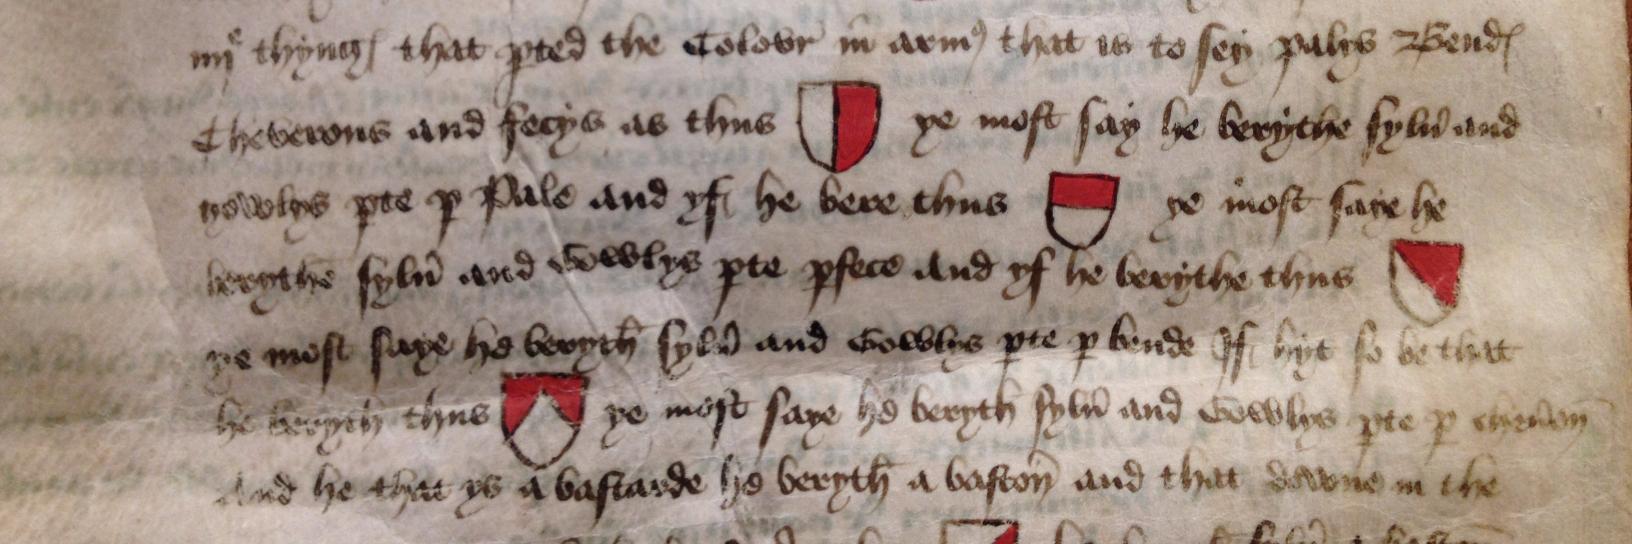 iiijͤ thyngꝭ that ꝑted the Colovr in armꝭ that is to sey palys Bendꝭ
Cheverons and fecys as thus ye most say he berythe sylũ and
gowlys ꝑte ꝑ Pale and yf he bere thus ye most saye he
berythe sylũ and Gowlys ꝑte ꝑfece and yf he berythe thus
ye most saye he beryth sylũ and Gowlys ꝑte ꝑ bende If hyt so be that
he beryth thus ye most saye he beryth sylũ and Gowlys ꝑte ꝑ
And he that ys a bastarde he beryth a baston and that downe in the